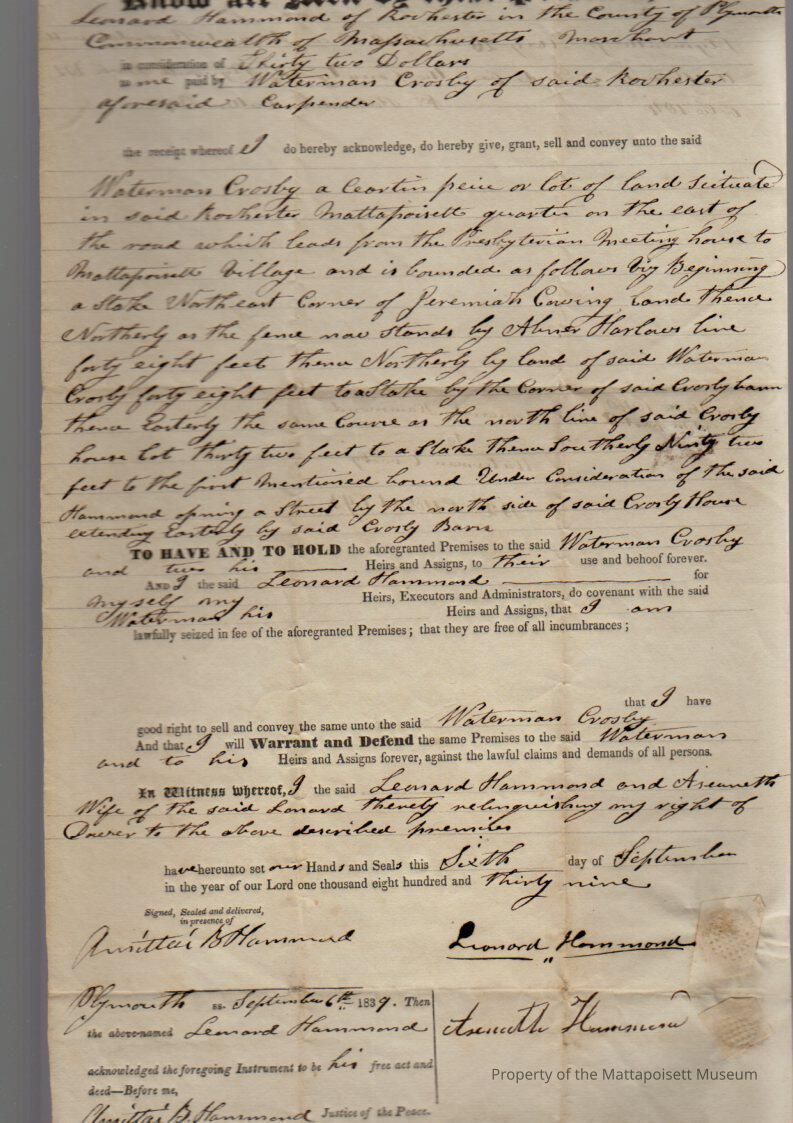 Know all Men by these
Leonard Hammond of Rochester in the County of Plymouth
Commonwealth of Massachusetts Marchant
in consideration of Thirty two Dollars
to me paid by Waterman Crosby of said Rochester
aforesaid Carpender
the receipt whereof I do hereby acknowledge, do hereby give, grant, sell and convey unto the said
Waterman Crosby a Ceartin peice or lot of land Scituate
in said Rochester Mattapoisett quarter on the east of
the road which leads from the Presbyterian Meeting house to
Mattapoisett Village and is bounded as follows Viz Beginning
a Stake North east Corner of Jeremiah Cowing Land thence
Northerly as the fence now Stands by Abner Harlows line
forty eight feet thence Northerly by land of said Waterman
Crosby forty eight feet to a Stake by the Corner of said Crosby barn
thence Easterly the same Course as the north line of said Crosby
house lot thirty two feet to a Stake thence Southerly Ninty two
feet to the first Mentioned bound Under Consideration of the said
Hammond opning a Street by the north side of said Crosby House
extending Easterly by said Crosby Barn
TO HAVE AND TO HOLD the aforegranted Premises to the said Waterman Crosby
and his Heirs and Assigns, to their use and behoof forever.
AND I the said Leonard Hammond for
myself my Heirs, Executors and Administrators, do covenant with the said
Waterman his Heirs and Assigns, that I am
lawfully seized in fee of the aforegranted Premises; that they are free of all incumbrances;
that I have
good right to sell and convey the same unto the said Waterman Crosby
And that I will Warrant and Defend the same Premises to the said Waterman
and to his Heirs and Assigns forever, against the lawful claims and demands of all persons.
In Witness whereof, I the said Leonard Hammond and Aseaneth
Wife of the said Lonard thereby relinquishing my right of
Dower to the above described premises
have hereunto set our Hands and Seals this Sixth day of September
in the year of our Lord one thousand eight hundred and thirty nine
Signed, Sealed and delivered,
in presence of
Amittai B Hammond Leonard Hammond
Plymouth ss. September 6th 1839. Then
the above-named Leonard Hammond Aseneth Hammond
acknowledged the foregoing Instrument to be his free act and
deed—Before me,
Amittai B. Hammond Justice of the Peace.
Property of the Mattapoisett Museum